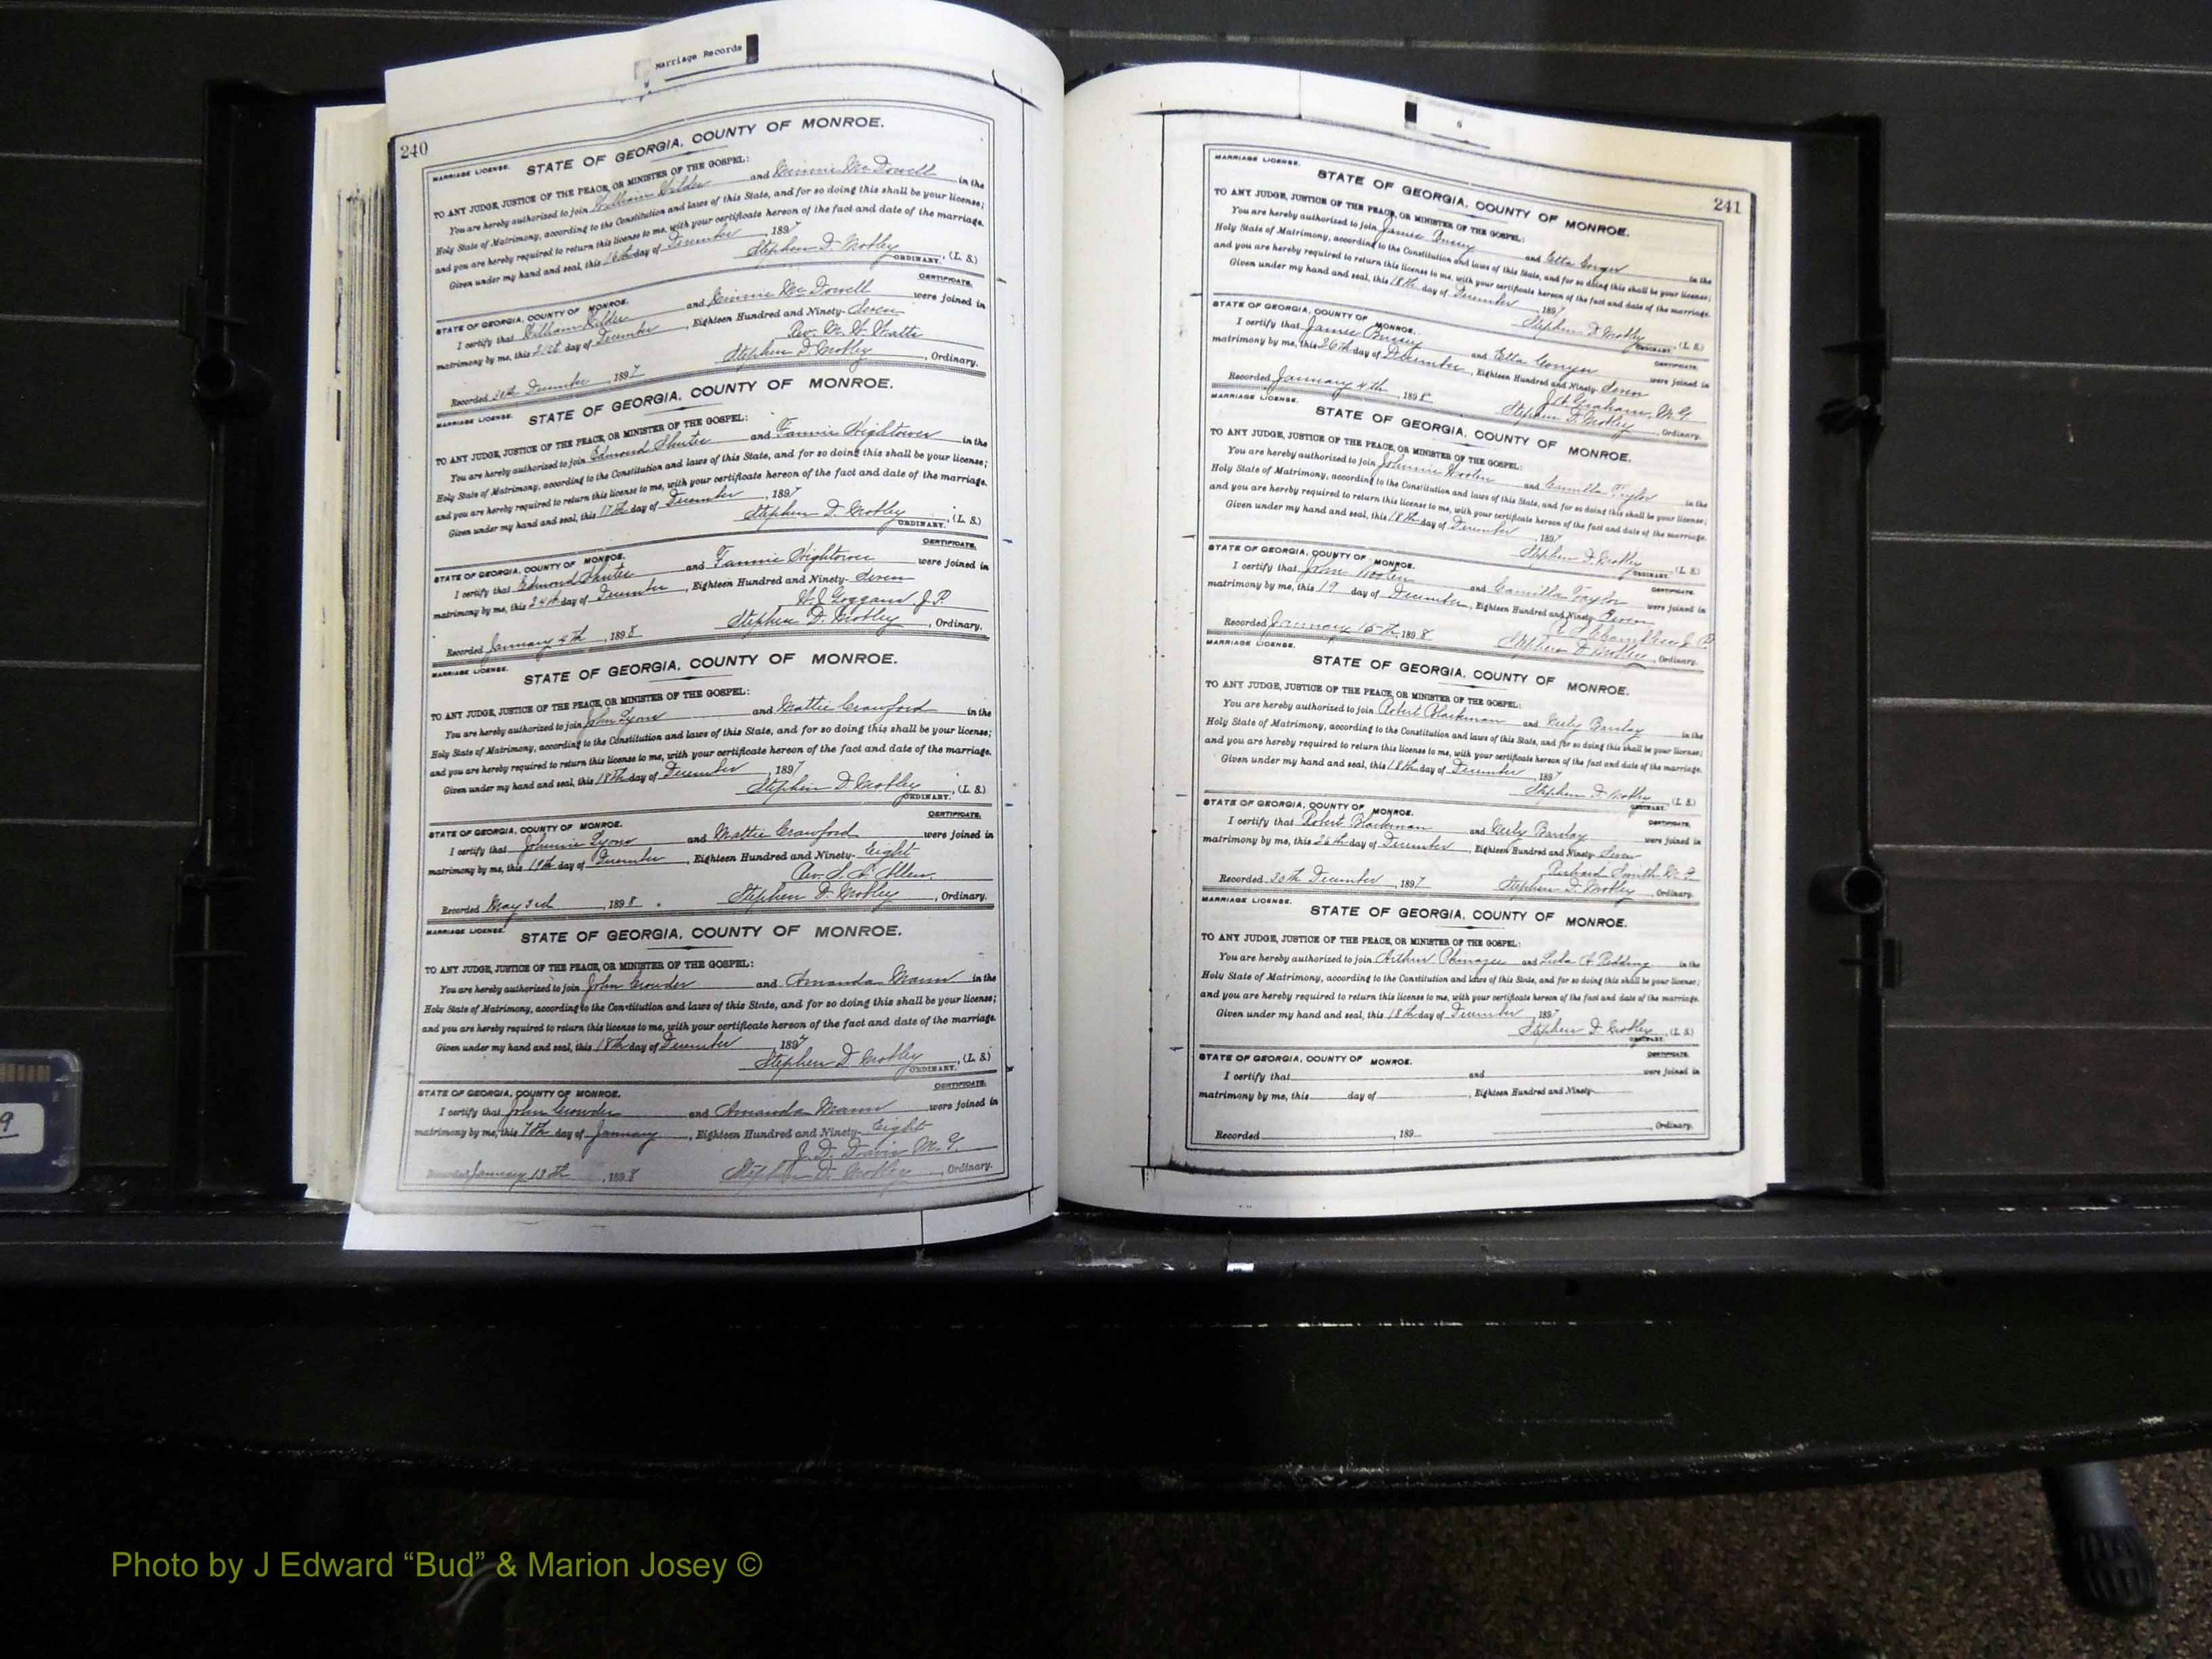 Marriage Records
240
STATE OF GEORGIA, COUNTY OF MONROE.
MARRIAGE LICENSE.
TO ANY JUDGE, JUSTICE OF THE PEACE, OR MINISTER OF THE GOSPEL:
You are hereby authorized to join William and Minnie McDowell in the
Holy State of Matrimony, according to the Constitution and laws of this State, and for so doing this shall be your license;
and you are hereby required to return this license to me, with your certificate hereon of the fact and date of the marriage.
Given under my hand and seal, this 16th day of December, 1897
Stephen D. Mobley, (L. S.)
ORDINARY.
CERTIFICATE.
STATE OF GEORGIA, COUNTY OF MONROE.
I certify that William and Minnie McDowell were joined in
matrimony by me, this 21st day of December, Eighteen Hundred and Ninety-Seven
Rev. M. W. Watts
Recorded December, 1897 Stephen D. Mobley, Ordinary.
MARRIAGE LICENSE.
STATE OF GEORGIA, COUNTY OF MONROE.
TO ANY JUDGE, JUSTICE OF THE PEACE, OR MINISTER OF THE GOSPEL:
You are hereby authorized to join Edmond and Fannie Hightower in the
Holy State of Matrimony, according to the Constitution and laws of this State, and for so doing this shall be your license;
and you are hereby required to return this license to me, with your certificate hereon of the fact and date of the marriage.
Given under my hand and seal, this 17th day of December, 1897
Stephen D. Mobley, (L. S.)
ORDINARY.
CERTIFICATE.
STATE OF GEORGIA, COUNTY OF MONROE.
I certify that Edmond and Fannie Hightower were joined in
matrimony by me, this 24th day of December, Eighteen Hundred and Ninety-Seven
J. P.
Recorded January 4th, 1898 Stephen D. Mobley, Ordinary.
MARRIAGE LICENSE.
STATE OF GEORGIA, COUNTY OF MONROE.
TO ANY JUDGE, JUSTICE OF THE PEACE, OR MINISTER OF THE GOSPEL:
You are hereby authorized to join John Lyons and Mattie Crawford in the
Holy State of Matrimony, according to the Constitution and laws of this State, and for so doing this shall be your license;
and you are hereby required to return this license to me, with your certificate hereon of the fact and date of the marriage.
Given under my hand and seal, this 18th day of December, 1897
Stephen D. Mobley, (L. S.)
ORDINARY.
CERTIFICATE.
STATE OF GEORGIA, COUNTY OF MONROE.
I certify that Johnnie Lyons and Mattie Crawford were joined in
matrimony by me, this 19th day of December, Eighteen Hundred and Ninety-Eight
Rev. Allen.
Recorded May 3rd, 1898. Stephen D. Mobley, Ordinary.
MARRIAGE LICENSE.
STATE OF GEORGIA, COUNTY OF MONROE.
TO ANY JUDGE, JUSTICE OF THE PEACE, OR MINISTER OF THE GOSPEL:
You are hereby authorized to join John Crowder and Amanda Mann in the
Holy State of Matrimony, according to the Constitution and laws of this State, and for so doing this shall be your license;
and you are hereby required to return this license to me, with your certificate hereon of the fact and date of the marriage.
Given under my hand and seal, this 18th day of December, 1897
Stephen D. Mobley, (L. S.)
ORDINARY.
CERTIFICATE.
STATE OF GEORGIA, COUNTY OF MONROE.
I certify that John Crowder and Amanda Mann were joined in
matrimony by me, this 7th day of January, Eighteen Hundred and Ninety-Eight
J. D. Davis M. G.
Recorded January 13th, 1898 Stephen D. Mobley, Ordinary.
241
MARRIAGE LICENSE.
STATE OF GEORGIA, COUNTY OF MONROE.
TO ANY JUDGE, JUSTICE OF THE PEACE, OR MINISTER OF THE GOSPEL:
You are hereby authorized to join James and Etta Conyer in the
Holy State of Matrimony, according to the Constitution and laws of this State, and for so doing this shall be your license;
and you are hereby required to return this license to me, with your certificate hereon of the fact and date of the marriage.
Given under my hand and seal, this 18th day of December, 1897
Stephen D. Mobley, (L. S.)
ORDINARY.
CERTIFICATE.
STATE OF GEORGIA, COUNTY OF MONROE.
I certify that James and Etta Conyer were joined in
matrimony by me, this 26th day of December, Eighteen Hundred and Ninety-Seven
J. A. Graham, M. G.
Recorded January 4th, 1898 Stephen D. Mobley, Ordinary.
MARRIAGE LICENSE.
STATE OF GEORGIA, COUNTY OF MONROE.
TO ANY JUDGE, JUSTICE OF THE PEACE, OR MINISTER OF THE GOSPEL:
You are hereby authorized to join Johnnie Wooten and Camilla Taylor in the
Holy State of Matrimony, according to the Constitution and laws of this State, and for so doing this shall be your license;
and you are hereby required to return this license to me, with your certificate hereon of the fact and date of the marriage.
Given under my hand and seal, this 18th day of December, 1897
Stephen D. Mobley, (L. S.)
ORDINARY.
CERTIFICATE.
STATE OF GEORGIA, COUNTY OF MONROE.
I certify that John Wooten and Camilla Taylor were joined in
matrimony by me, this 19 day of December, Eighteen Hundred and Ninety-Seven
J. P.
Recorded January 15th, 1898 Stephen D. Mobley, Ordinary.
MARRIAGE LICENSE.
STATE OF GEORGIA, COUNTY OF MONROE.
TO ANY JUDGE, JUSTICE OF THE PEACE, OR MINISTER OF THE GOSPEL:
You are hereby authorized to join Robert Blackman and Barclay in the
Holy State of Matrimony, according to the Constitution and laws of this State, and for so doing this shall be your license;
and you are hereby required to return this license to me, with your certificate hereon of the fact and date of the marriage.
Given under my hand and seal, this 18th day of December, 1897
Stephen D. Mobley, (L. S.)
ORDINARY.
CERTIFICATE.
STATE OF GEORGIA, COUNTY OF MONROE.
I certify that Robert Blackman and Barclay were joined in
matrimony by me, this 26th day of December, Eighteen Hundred and Ninety-Seven
Richard Smith M. G.
Recorded 30th December, 1897 Stephen D. Mobley, Ordinary.
MARRIAGE LICENSE.
STATE OF GEORGIA, COUNTY OF MONROE.
TO ANY JUDGE, JUSTICE OF THE PEACE, OR MINISTER OF THE GOSPEL:
You are hereby authorized to join Arthur and Lula A. Redding in the
Holy State of Matrimony, according to the Constitution and laws of this State, and for so doing this shall be your license;
and you are hereby required to return this license to me, with your certificate hereon of the fact and date of the marriage.
Given under my hand and seal, this 18th day of December, 1897
Stephen D. Mobley, (L. S.)
ORDINARY.
CERTIFICATE.
STATE OF GEORGIA, COUNTY OF MONROE.
I certify that and were joined in
matrimony by me, this day of , Eighteen Hundred and Ninety-
Recorded , 189 , Ordinary.
9
Photo by J Edward “Bud” & Marion Josey ©